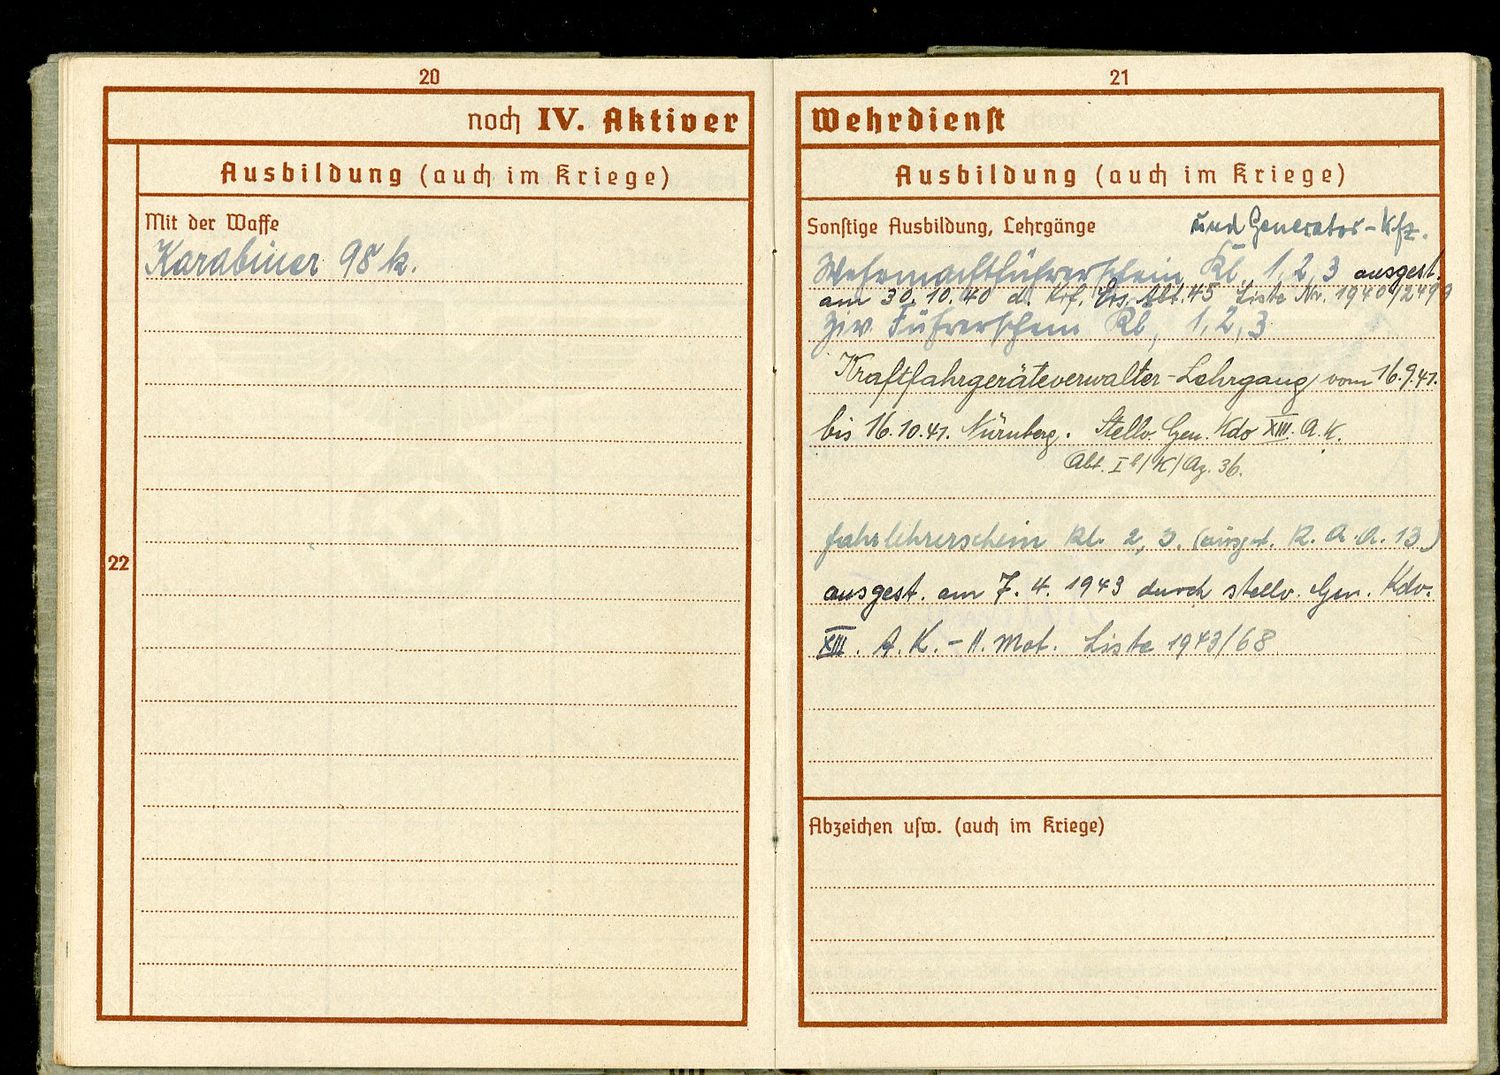 20
noch IV. Aktiver
Ausbildung (auch im Kriege)
Mit der Waffe
Karabiner 98 k.
22
21
Wehrdienst
Ausbildung (auch im Kriege)
Sonstige Ausbildung, Lehrgänge
und Generator-Kfz.
Wehrmachtführerschein Kl. 1, 2, 3 ausgest.
am 30. 10. 40 d. Krf. Ers. Abt. 45 Liste Nr. 1940/2499
Ziv. Führerschein Kl. 1, 2, 3
Kraftfahrgeräteverwalter-Lehrgang vom 16.9.41.
bis 16.10.41. Nürnberg. Stellv. Gen. Kdo XIII. A.K.
Abt. Ib/K/Az. 36.
Fahrlehrerschein Kl. 2, 3. (ausgest. K. A. A. 13)
ausgest. am 7. 4. 1943 durch stellv. Gen. Kdo.
XIII. A. K. - II. Mot. Liste 1943/68
Abzeichen usw. (auch im Kriege)